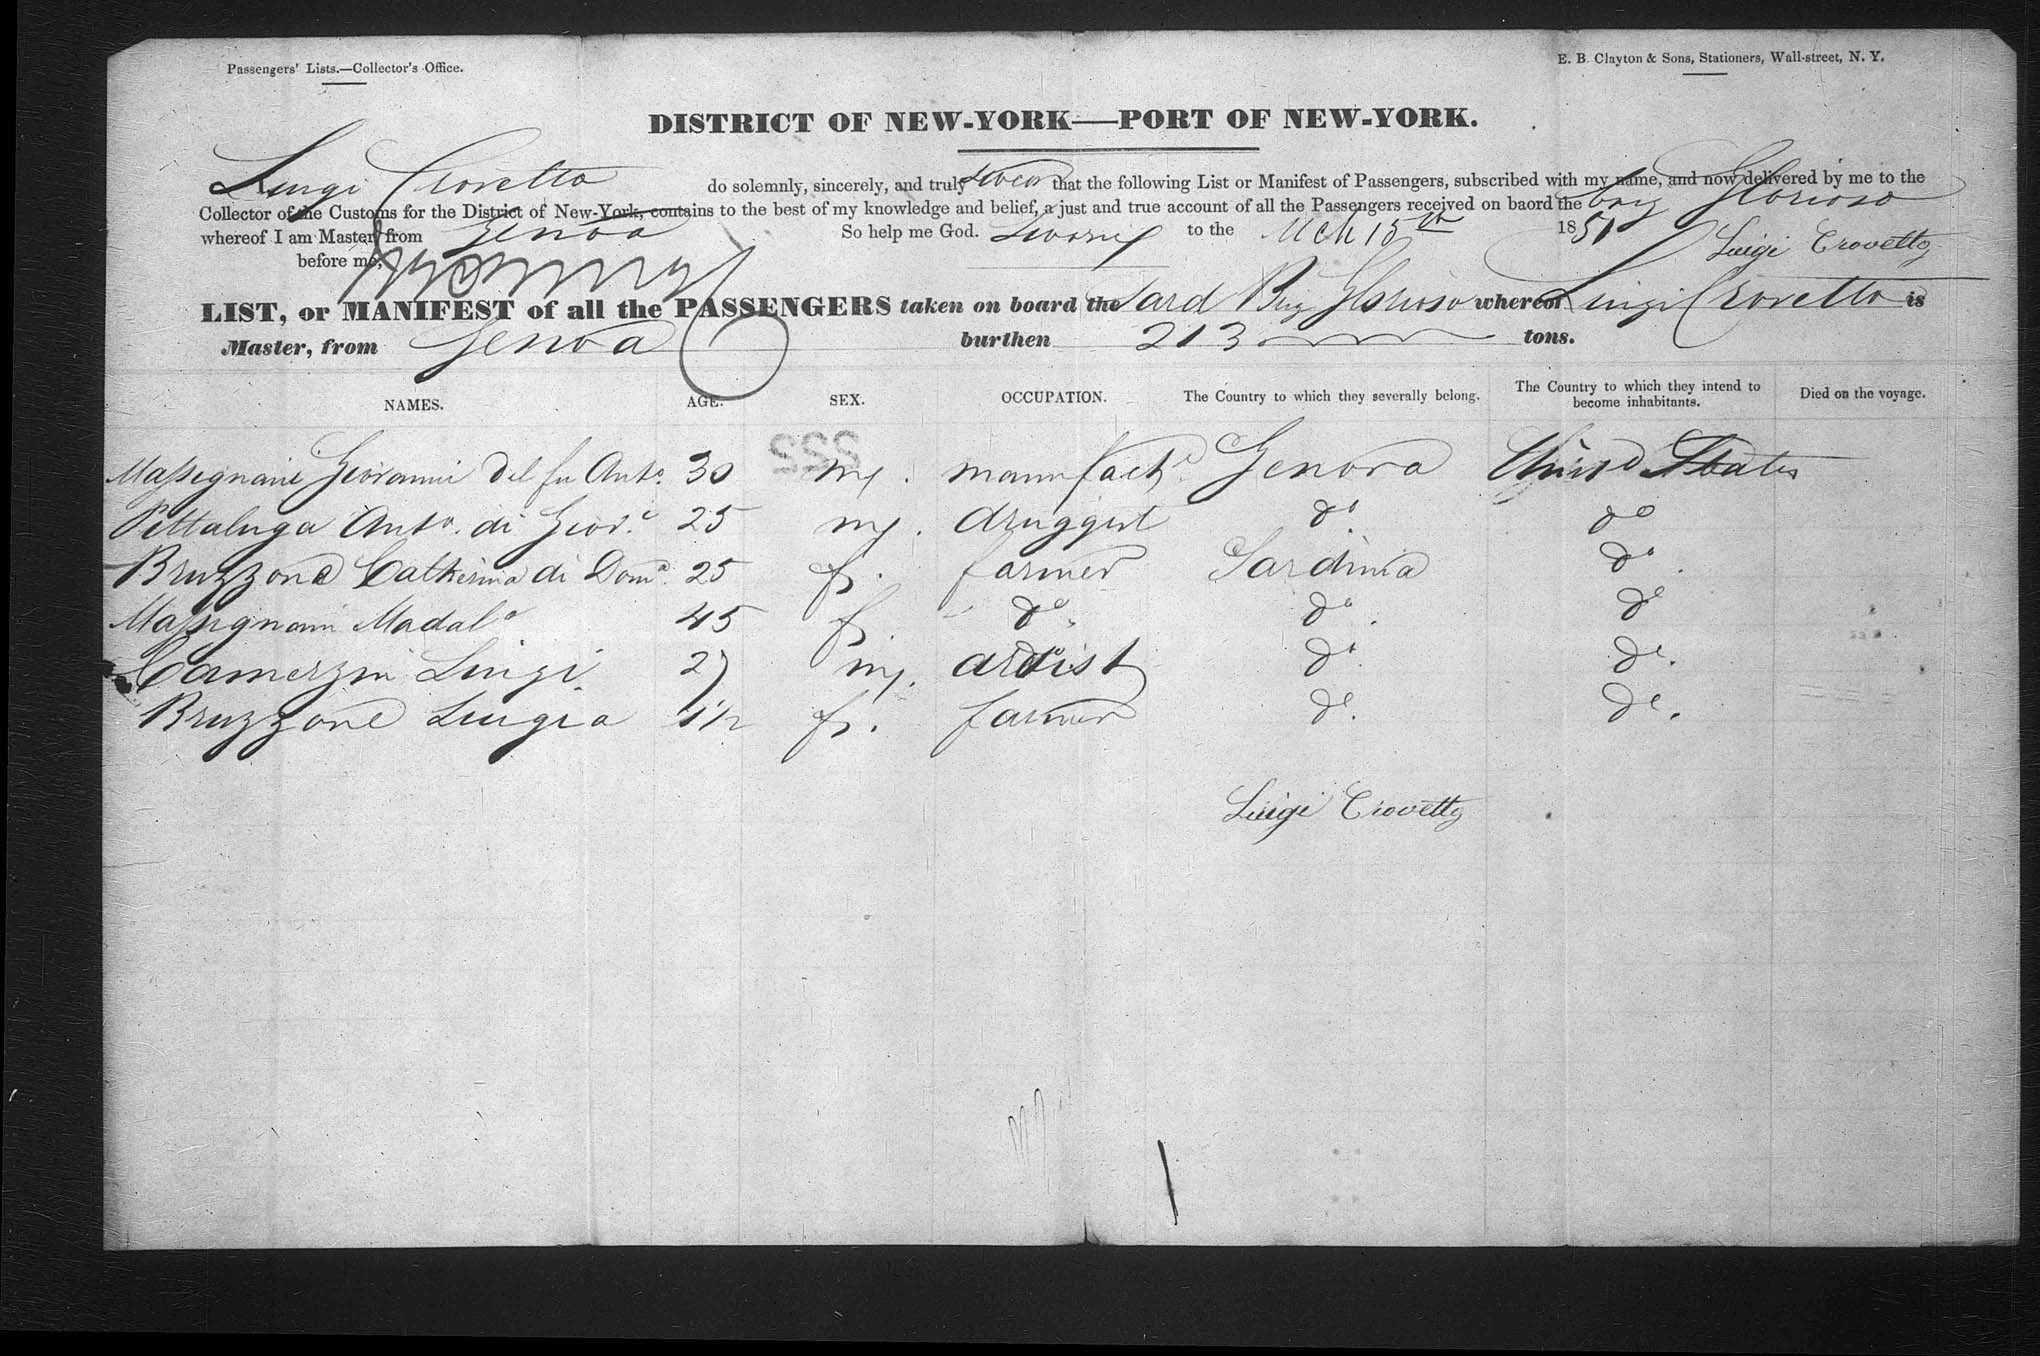 Passengers' Lists.—Collector's Office.
E. B. Clayton & Sons, Stationers, Wall-street, N. Y.
DISTRICT OF NEW-YORK—PORT OF NEW-YORK.
Luigi Crovetto do solemnly, sincerely, and truly swear that the following List or Manifest of Passengers, subscribed with my name, and now delivered by me to the
Collector of the Customs for the District of New-York, contains to the best of my knowledge and belief, a just and true account of all the Passengers received on baord the brig Glorioso
whereof I am Master, from Genoa So help me God. Sworn to the Mch 15th 1851 Luigi Crovetto
before me,
LIST, or MANIFEST of all the PASSENGERS taken on board the Sard Brig Glorioso whereof Luigi Crovetto is
Master, from Genoa burthen 213 tons.
NAMES. AGE. SEX. OCCUPATION. The Country to which they severally belong. The Country to which they intend to become inhabitants. Died on the voyage.
222
Massegnani Giovanni del fu Anto. 30 m. manufact. Genova United States
Pittaluga Anto. di Giov. 25 m. druggist do do
Bruzzone Catherina di Dom. 25 f. farmer Sardinia do.
Massignani Madal 45 f do. do. do
Camerzin Luigi 27 m. artist do. do.
Bruzzone Luigia 1 1/2 f. farmer do. do.
Luigi Crovetto